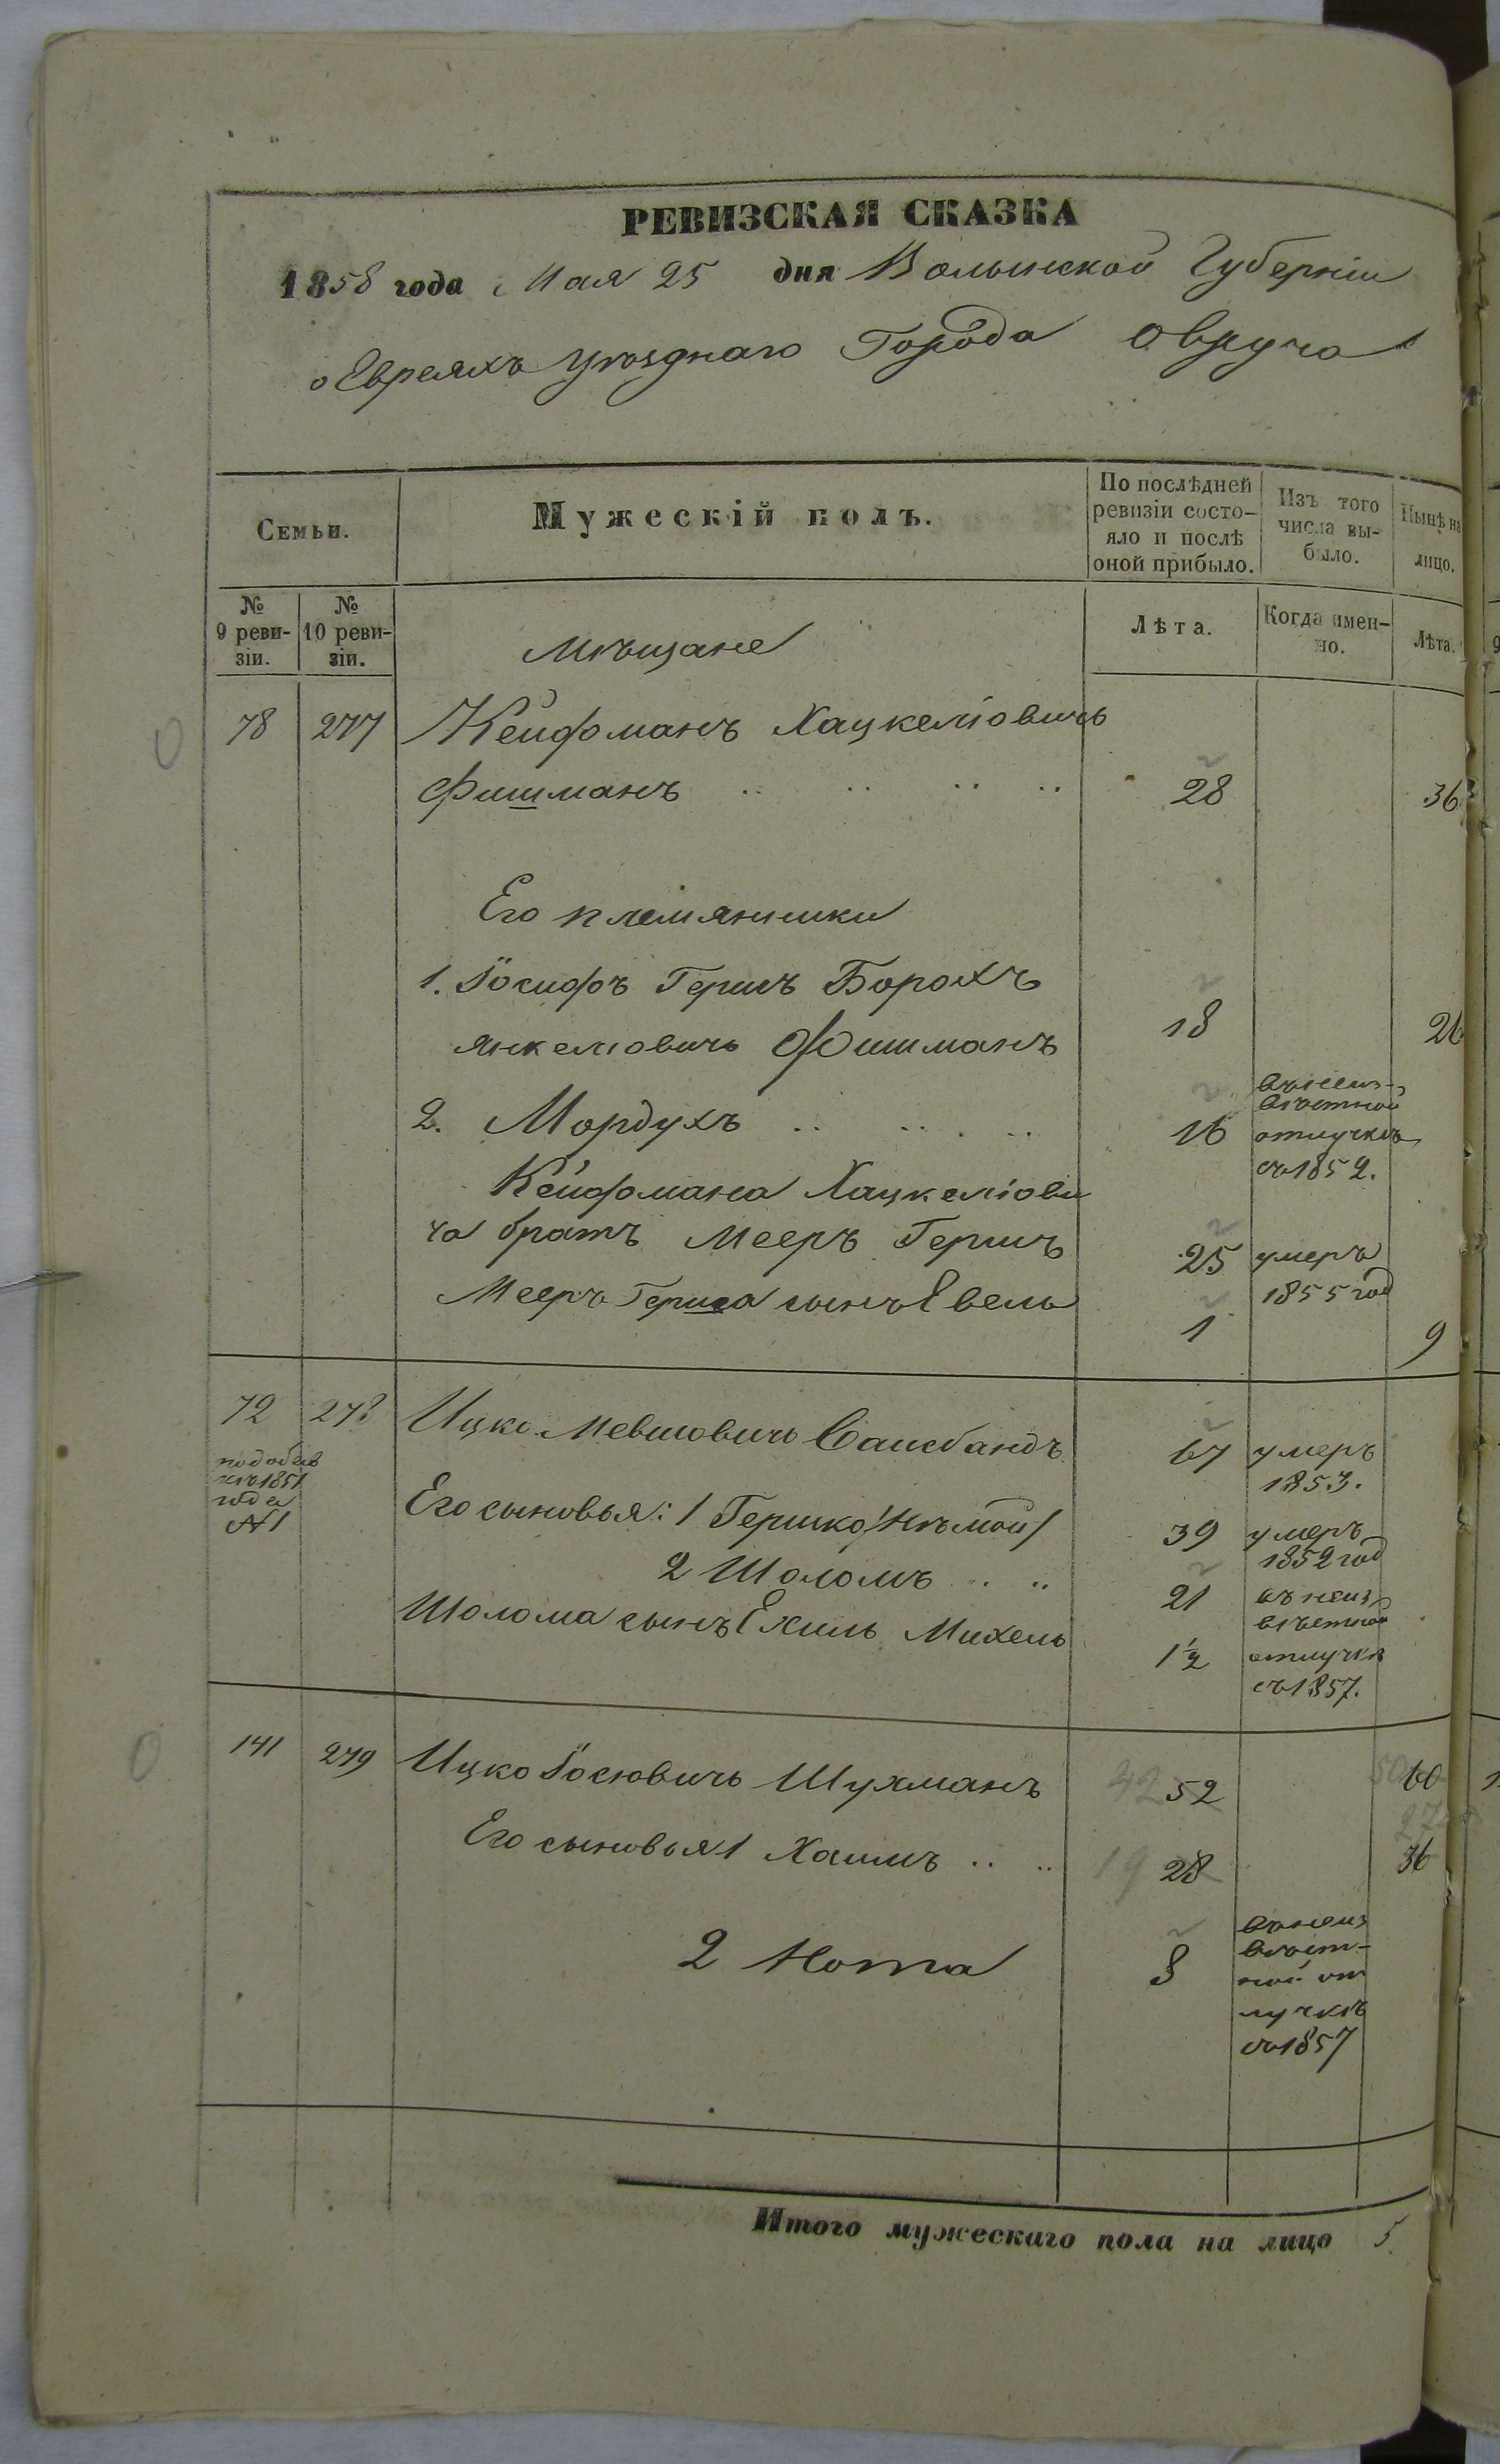 РЕВИЗСКАЯ СКАЗКА
1858 года Мая 25 дня Волынской Губерніи
о Евреяхъ уѣзднаго Города Овруча
Семьи.
Мужескій полъ.
По послѣдней ревизіи состо-
яло и послѣ оной прибыло.
Изъ того числа вы-
было.
Нынѣ на лицо.
№ 9 реви-
зіи.
№ 10 реви-
зіи.
Лѣта.
Когда имен-
но.
Лѣта.
Мѣщане
78 277 Кейфманъ Хацкеліовичъ
Фишманъ 28 36
Его племянники
1. Іосифъ Гершъ Борохъ
Янкеліовичъ Фишманъ 18 26
2. Мордухъ 16
въ неиз-
вѣстной
отлучкѣ
съ 1852.
Кейфмана Хацкеліови
ча братъ Мееръ Гершъ 25 умеръ
1855 год
Мееръ Герша сынъ Евель 1 9
72 278 Ицко Мевшовичъ 67 умеръ
1853.
1851
года
№1
Его сыновья: 1 Гершко /Нѣмой/ 39 умеръ
1852 год
2 Шоломъ 21
Шолома сынъ Ехиль Михель 1½
въ неиз
вѣстной
отлучкѣ
съ 1857.
141 279 Ицко Іосіовичъ Шухманъ 42 52 50 60
Его сыновья 1 Хаимъ 19 28 27 36
2 Нота 8
въ неиз
вѣст-
ной от
лучкѣ
съ 1857
Итого мужескаго пола на лицо 5